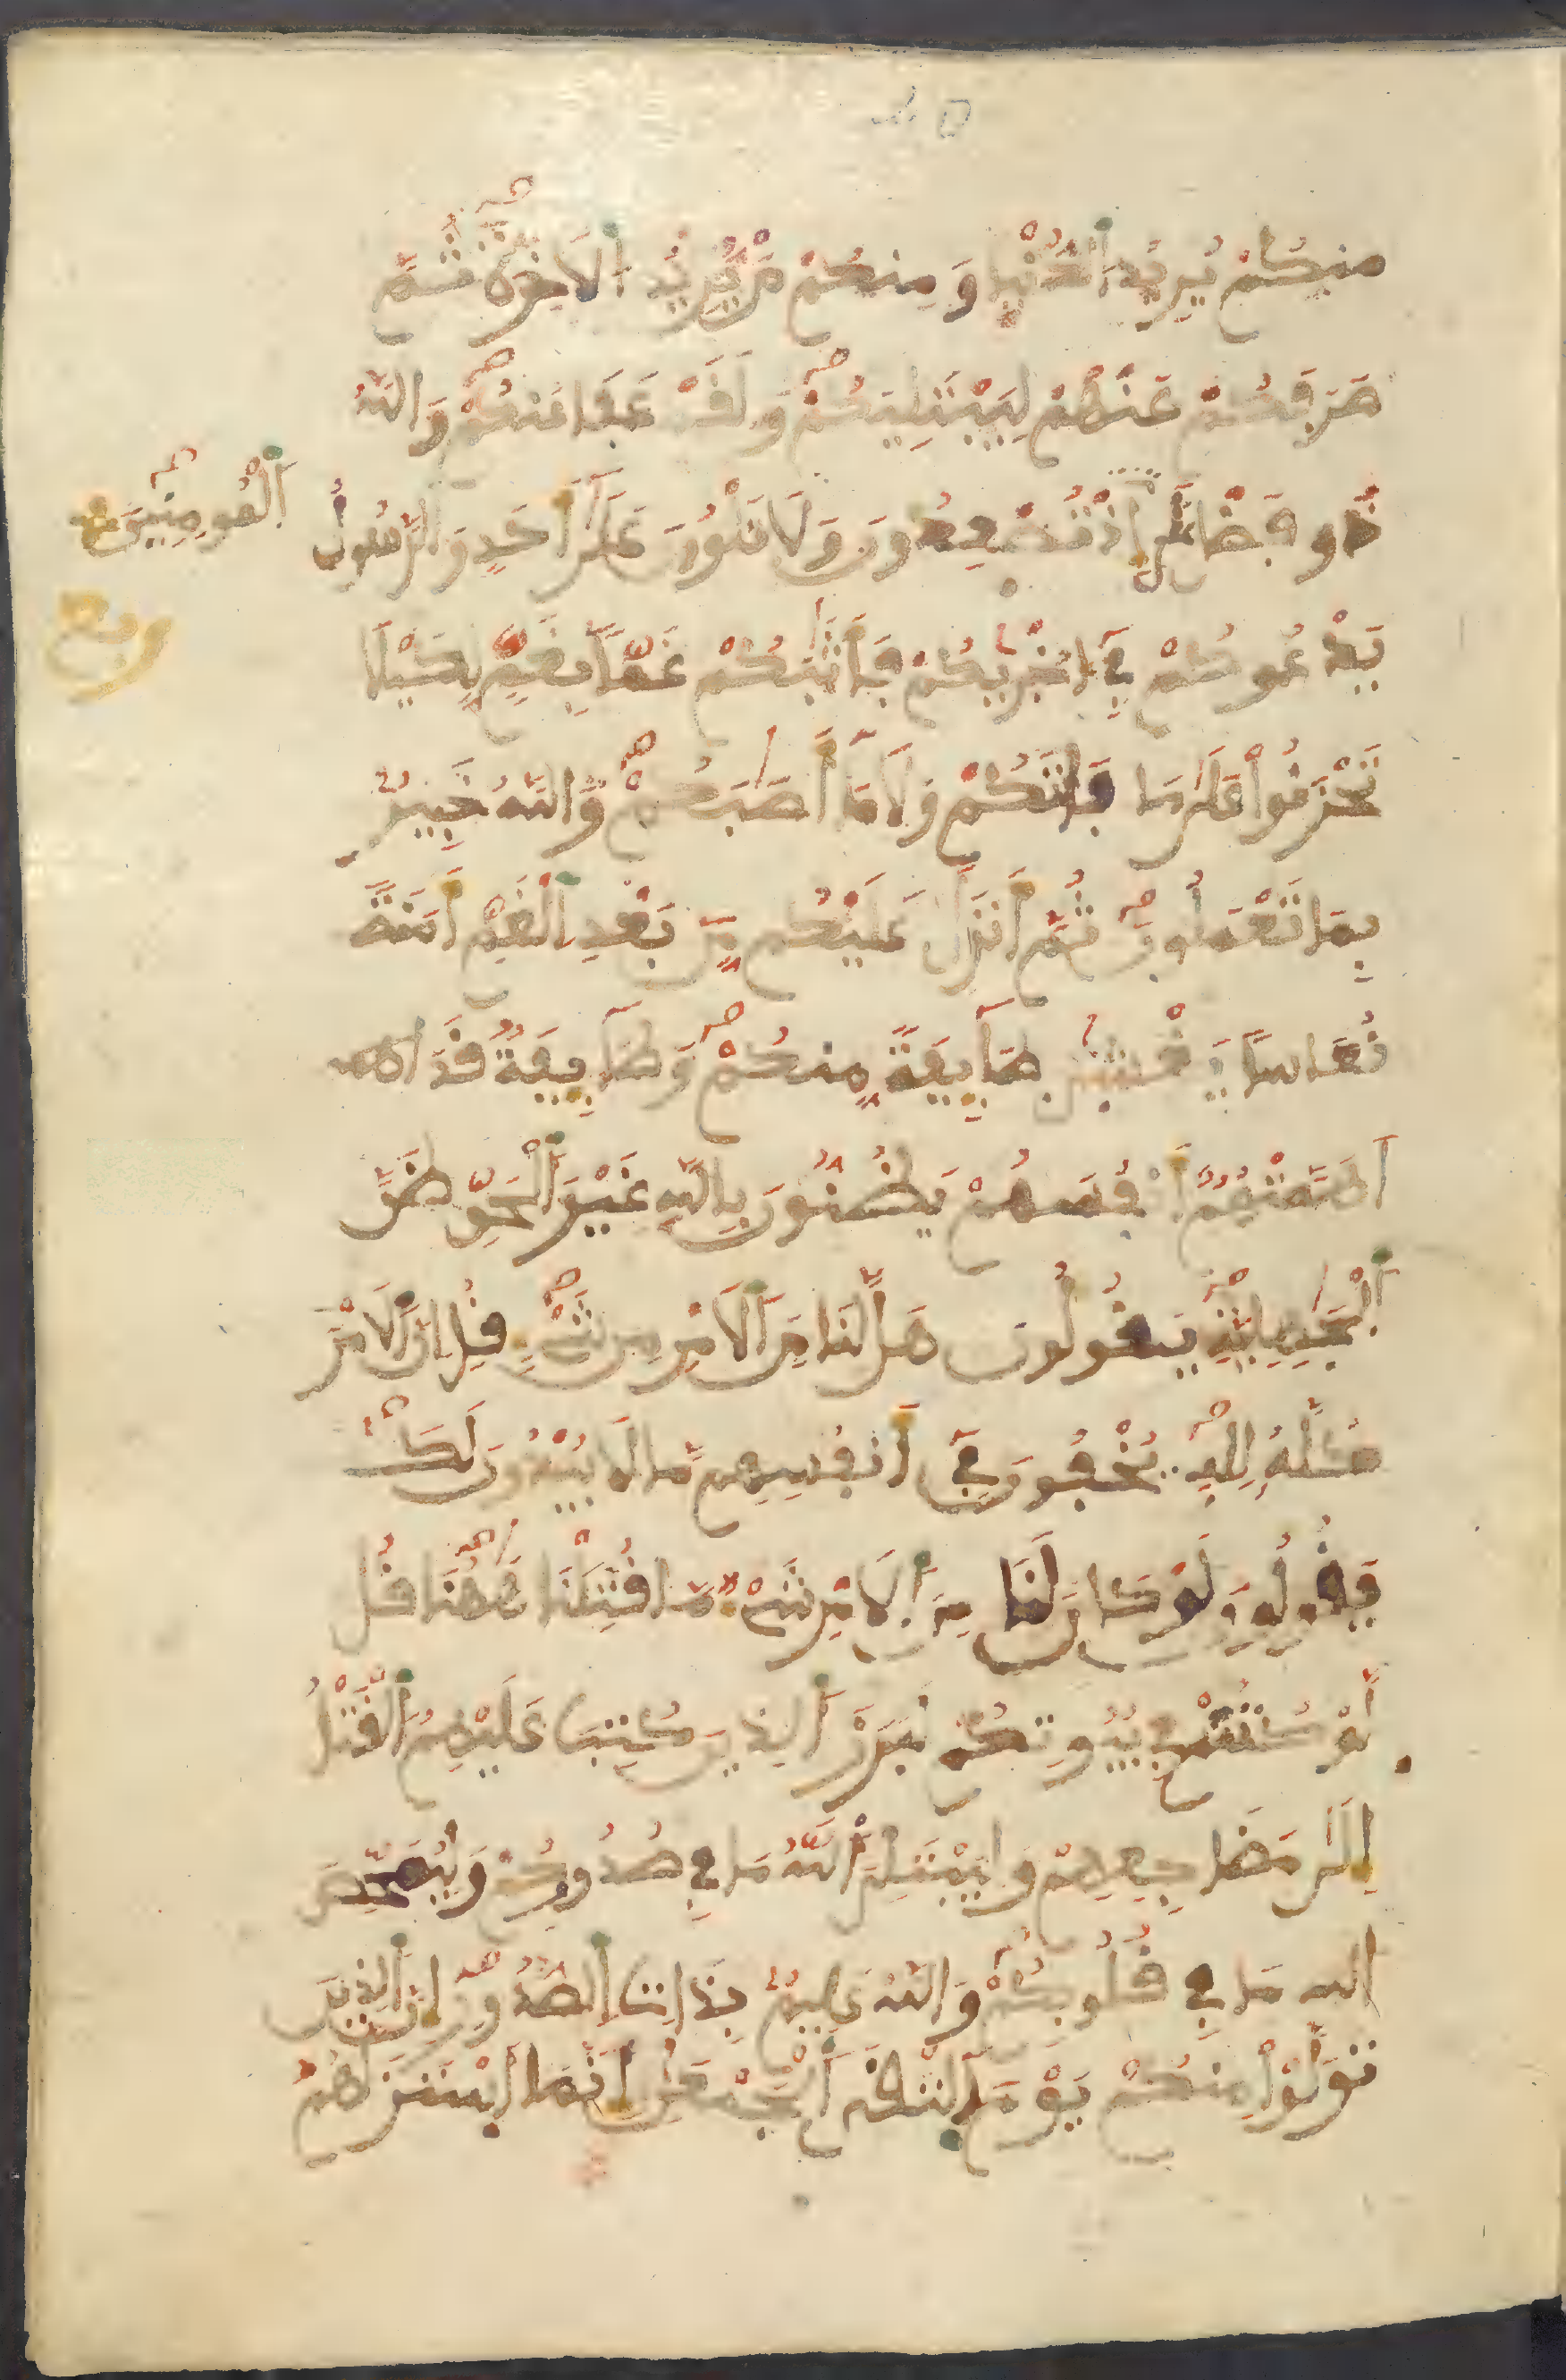 منكُمْ يُرِيدُ اَ۬لدُّنْيا وَمِنكُم مَّنْ يُّرِيدُ اُ۬لَاخِرَةَ ثُمَّ
صَرَفَكُمْ عَنْهُمْ لِيَبْتَلِيَكُمْ وَلَقَدْ عَفَا عَنكُمْ وَاللَّهُ
ذُو فَضْلٍ عَلَى
اَ۬لْمُومِنِينَ
إِذْ تُصْعِدُونَ وَلَا تَلْوُۥنَ عَلَىٰ أَحَدٍ وَالرَّسُولُ
ربع
يَدْعُوكُمْ فِي أُخْرَىٰكُمْ فَأَثَٰبَكُمْ غَمّاً بِغَمٍّ لِكَيْلَا
تَحْزَنُواْ عَلَىٰ مَا فَاتَكُمْ وَلَا مَا أَصَٰبَكُمْ وَاللَّهُ خَبِيرٌ
بِمَا تَعْمَلُونَ ثُمَّ أَنزَلَ عَلَيْكُم مِّنۢ بَعْدِ اِ۬لْغَمِّ أَمَنَةً
نُّعَاساً يَغْشَىٰ طَآئِفَةً مِّنكُمْ وَطَآئِفَةٌ قَدَ
اَهَمَّتْهُمُ أَنفُسُهُمْ يَظُنُّونَ بِاللَّهِ غَيْرَ اَ۬لْحَقِّ ظَنَّ
اَ۬لْجَٰهِلِيَّةِ يَقُولُونَ هَل لَّنَا مِنَ اَ۬لَامْرِ مِن شَيْءٍ قُلِ انَّ اَ۬لَامْرَ
كُلَّهُ لِلهِ يُخْفُونَ فِي أَنفُسِهِم مَّا لَا يُبْدُونَ لَكَ
يَقُولُونَ لَوْ كَانَ لَنَا مِنَ اَ۬لَامْرِ شَيْءٌ مَّا قُتِلْنَا هَٰهُنَا قُل
لَّوْ كُنتُمْ فِي بُيُوتِكُمْ لَبَرَزَ اَ۬لذِينَ كُتِبَ عَلَيْهِمُ اُ۬لْقَتْلُ
إِلَىٰ مَضَاجِعِهِمْ وَلِيَبْتَلِيَ اَ۬للَّهُ مَا فِي صُدُورِكُمْ وَلِيُمَحِّصَ
الله مَا فِي قُلُوبِكُمْ وَاللَّهُ عَلِيمٌ بِذَاتِ اِ۬لصُّدُورِ إِنَّ اَ۬لذِينَ
تَوَلَّوْاْ مِنكُمْ يَوْمَ اَ۬لْتَقَى اَ۬لْجَمْعَٰنِ إِنَّمَا اَ۪سْتَزَلَّهُمُ